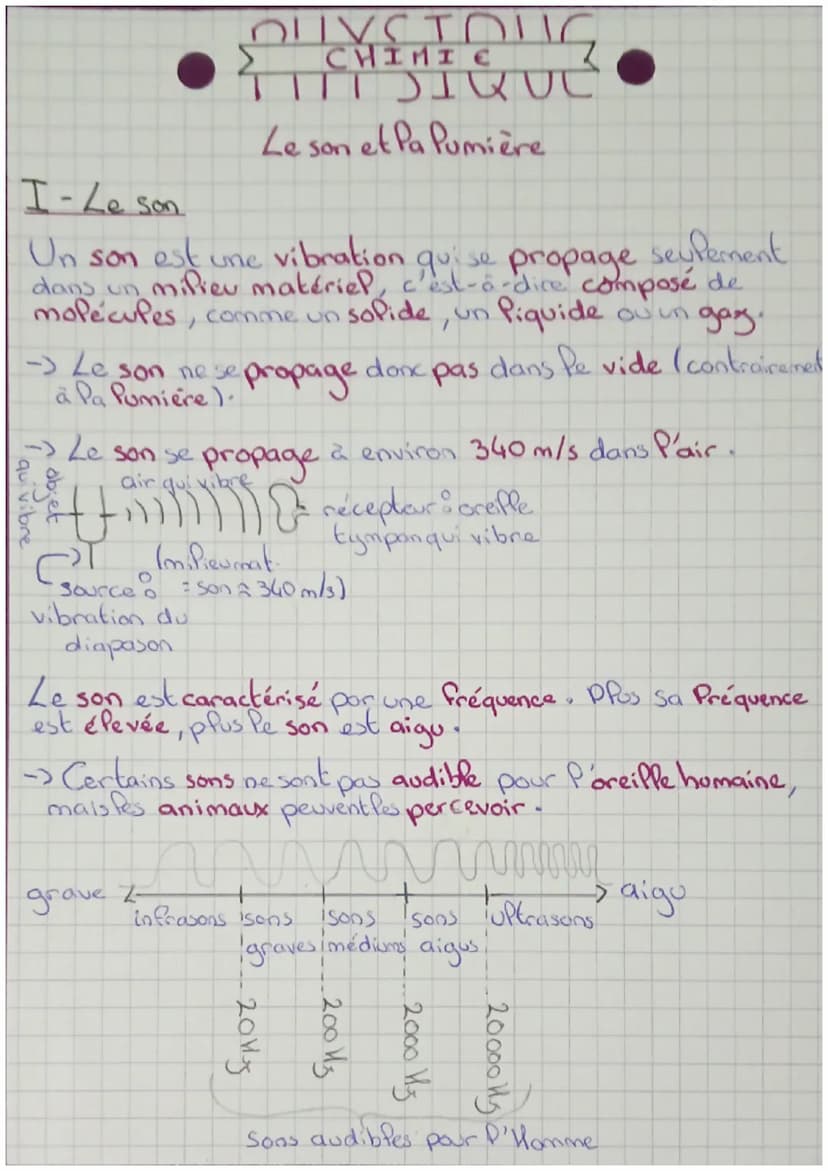 PHYSIQUE
CHIMIE
Le son et la lumière
I - Le son
Un son est une vibration qui se propage seulement
dans un milieu matériel, c'est-à-dire composé de
molécules, comme un solide, un liquide ou un gaz.
-> Le son ne se propage donc pas dans le vide (contrairement
à la lumière).
-> Le son se propage à environ 340 m/s dans l'air.
objet
qui vibre
air qui vibre
récepteur : oreille
tympan qui vibre
(milieu mat.
= son ≈ 340 m/s)
source :
vibration du
diapason
Le son est caractérisé par une fréquence. Plus sa fréquence
est élevée, plus le son est aigu.
-> Certains sons ne sont pas audible pour l'oreille humaine,
mais les animaux peuvent les percevoir.
grave aigu
infrasons sons sons sons ultrasons
graves médiums aigus
20 Hz 200 Hz 2000 Hz 20000 Hz
Sons audibles pour l'Homme